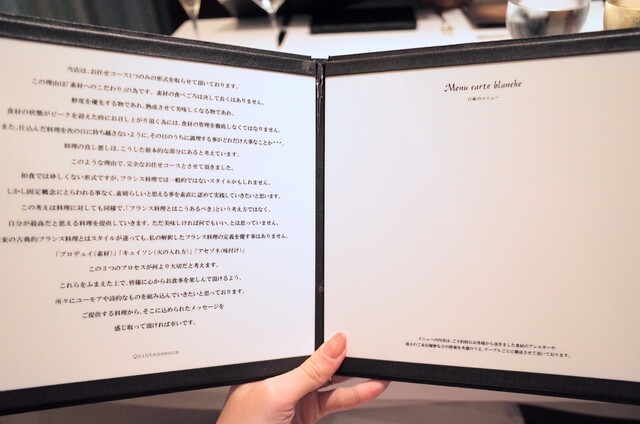 当店は、お任せコース1つのみの形式を取らせて頂いております。
この理由は「素材へのこだわり」の為です。素材の食べごろは決して長くはありません。
鮮度を優先する物であれ、熟成させて美味しくなる物であれ、
食材の状態がピークを迎えた時にお召し上がり頂く為には、食材の管理を徹底しなくてはなりません。
また、仕込んだ料理を次の日に持ち越さないように、その日のうちに調理する事がどれだけ大事なことか・・・。
料理の良し悪しは、こうした根本的な部分にあると考えています。
このような理由で、完全なお任せコースとさせて頂きました。
和食では珍しくない形式ですが、フランス料理では一般的ではないスタイルかもしれません。
しかし固定概念にとらわれる事なく、素晴らしいと思える事を素直に認めて実践していきたいと思います。
この考えは料理に対しても同様で、「フランス料理とはこうあるべき」という考え方ではなく、
自分が最高だと思える料理を提供していきます。ただ美味しければ何でもいい、とは思っていません。
来の古典的フランス料理とはスタイルが違っても、私の解釈したフランス料理の定義を覆す事はありません。
「プロデュイ(素材)」「キュイソン(火の入れ方)」「アセゾネ(味付け)」
この3つのプロセスが何より大切だと考えます。
これらをふまえた上で、皆様に心からお食事を楽しんで頂けるよう、
所々にユーモアや詩的なものを組み込んでいきたいと思っております。
ご提供する料理から、そこに込められたメッセージを
感じ取って頂ければ幸いです。
Quintessence
Menu carte blanche
白紙のメニュー
メニューの内容は、ご予約時にお客様から頂きました食材のアレルギーや
過去のご来店履歴などの情報を考慮のうえ、テーブルごとに構成させて頂いております。